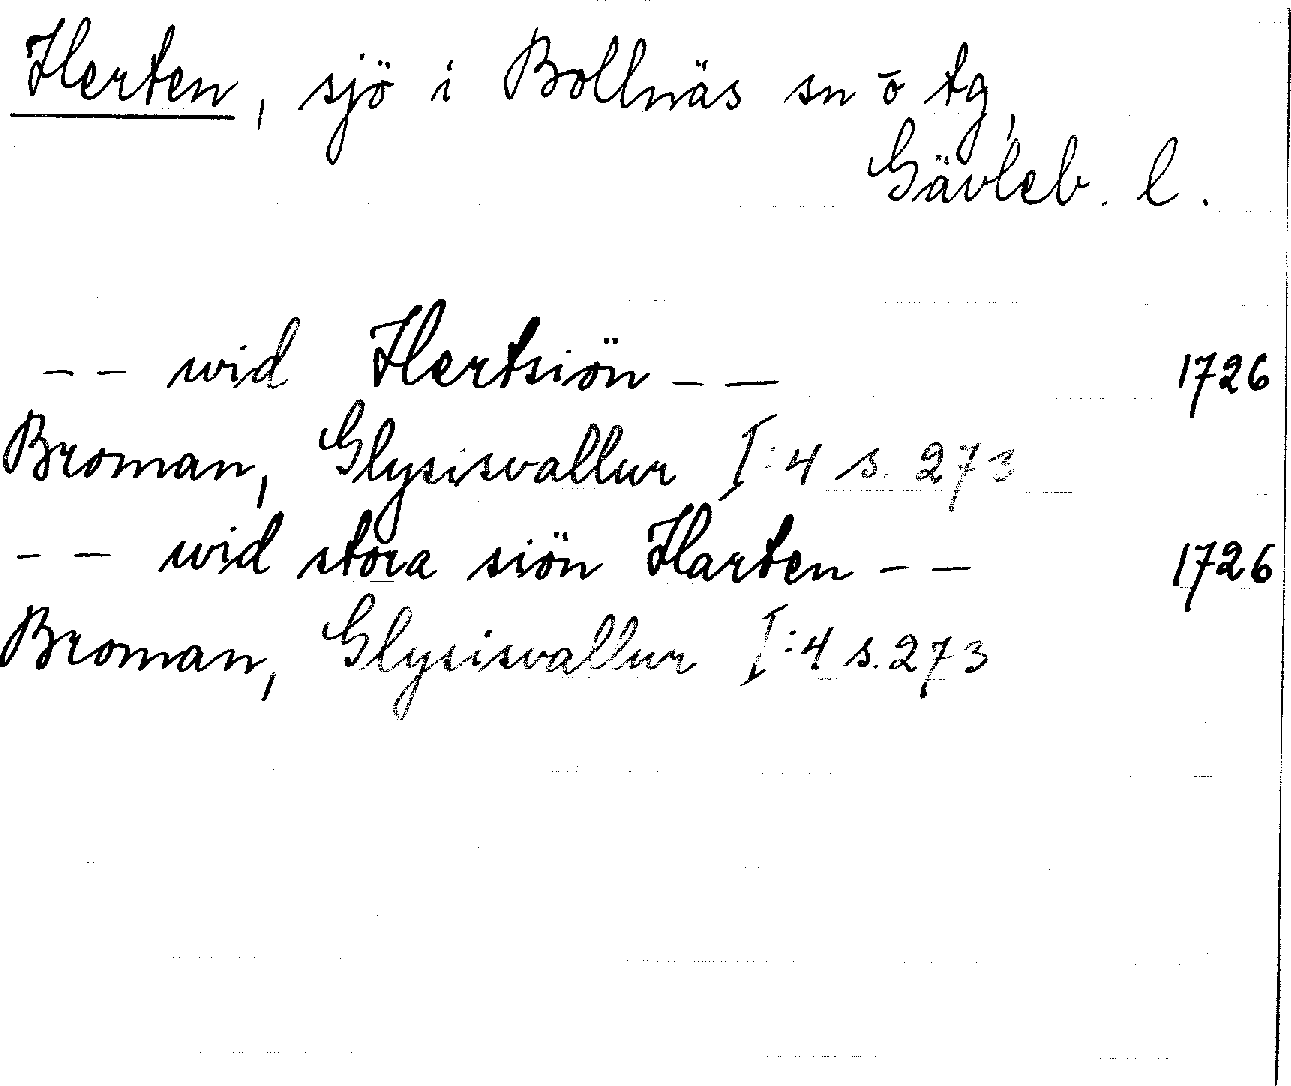 Herten, sjö i Bollnäs sn o tg,
Gävleb. l.
-- wid Hertsiön -- 1726
Broman, Glysisvallur I:4 s. 273
-- wid stora siön Harten -- 1726
Broman, Glysisvallur I:4 s. 273